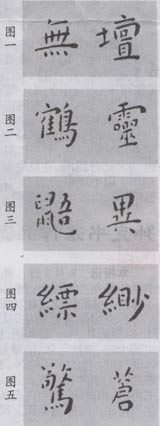 图一 無 壇
图二 鶴 靈
图三 鼯 異
图四 縹 緲
图五 驚 蒼